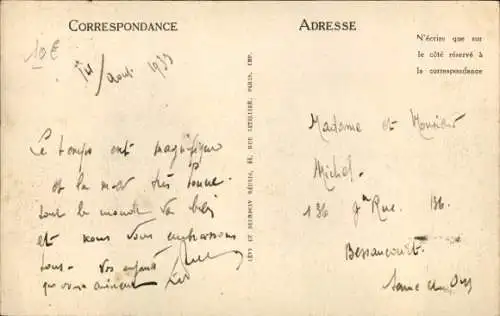 CORRESPONDANCE
ADRESSE
N'écrire que sur
le côté réservé à
la correspondance
10€
14/Août 1933
Le temps est magnifique
et la mer très bonne.
tout le monde va bien
et nous vous embrassons
tous. Vos enfants
qui vous aiment
LÉVY ET NEURDEIN RÉUNIS, 44, RUE LETELLIER, PARIS, IMP.
Madame et Monsieur
Michel.
136 Rue. 136.
Bessancourt.
Seine et Oise